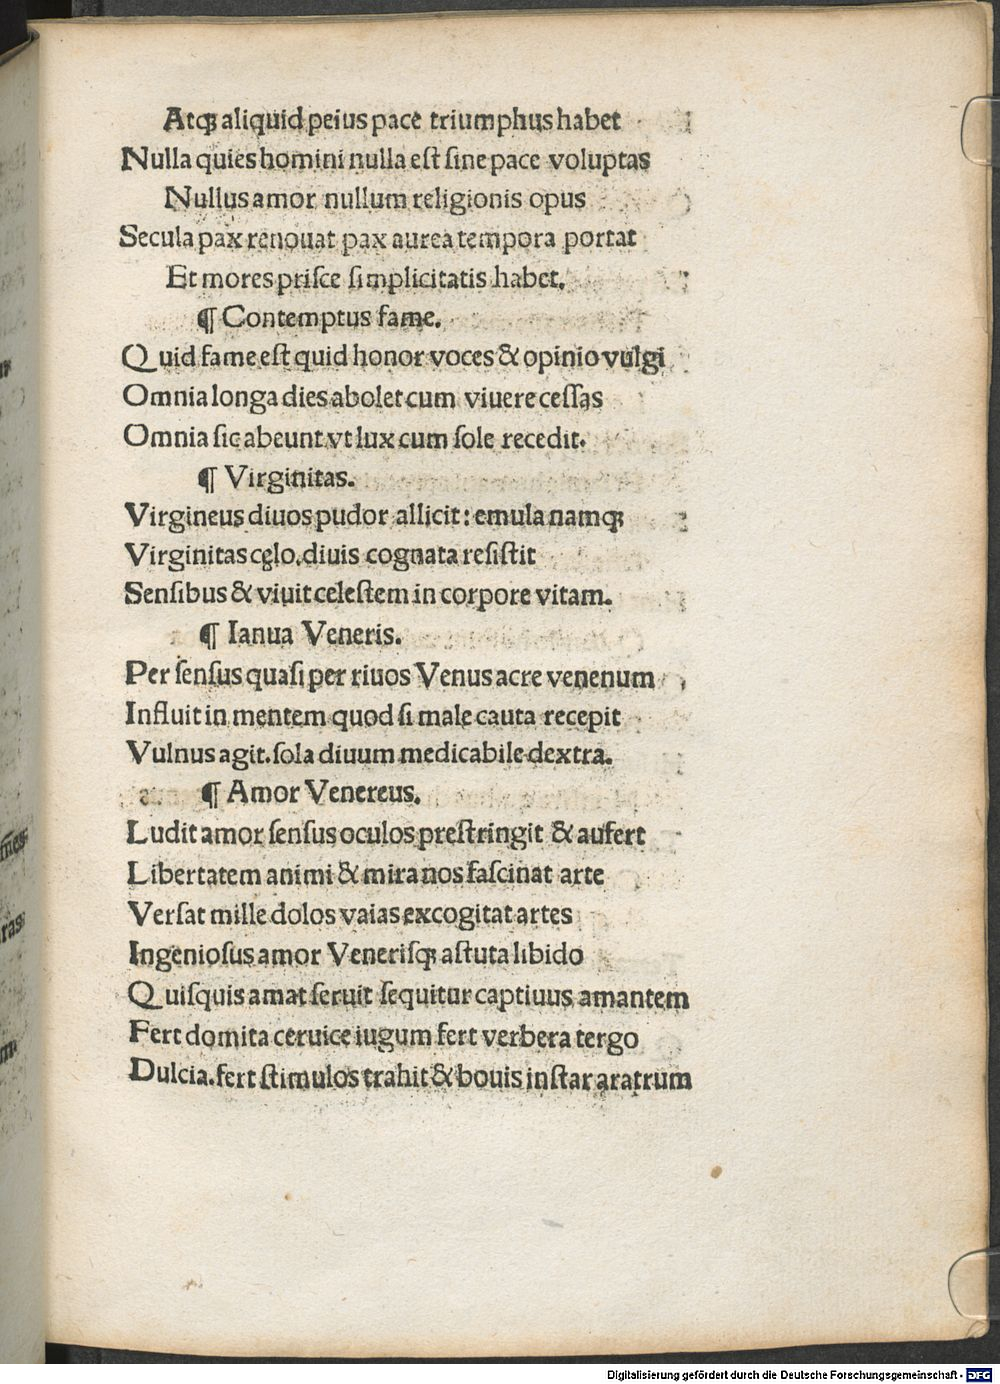 Atqꝫ aliquid peius pace triumphus habet
Nulla quies homini nulla est sine pace voluptas
Nullus amor nullum religionis opus
Secula pax renouat pax aurea tempora portat
Et mores prisce simplicitatis habet.
¶ Contemptus fame.
Quid fame est quid honor voces & opinio vulgi
Omnia longa dies abolet cum viuere cessas
Omnia sic abeunt vt lux cum sole recedit.
¶ Virginitas.
Virgineus diuos pudor allicit: emula namqꝫ
Virginitas cęlo. diuis cognata resistit
Sensibus & viuit celestem in corpore vitam.
¶ Ianua Veneris.
Per sensus quasi per riuos Venus acre venenum
Influit in mentem quod si male cauta recepit
Vulnus agit. sola diuum medicabile dextra.
¶ Amor Venereus.
Ludit amor sensus oculos prestringit & aufert
Libertatem animi & mira nos fascinat arte
Versat mille dolos vaias excogitat artes
Ingeniosus amor Venerisqꝫ astuta libido
Quisquis amat seruit sequitur captiuus amantem
Fert domita ceruice iugum fert verbera tergo
Dulcia. fert stimulos trahit & bouis instar aratrum
Digitalisierung gefördert durch die Deutsche Forschungsgemeinschaft - DFG